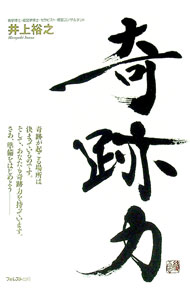 歯学博士・経営学博士・セラピスト・経営コンサルタント
井上裕之
Hiroyuki Inoue
奇跡力
奇跡が起こる場所は
決まっているのです。
そして、あなたも奇跡力を持っています。
さあ、準備をはじめよう?――
フォレスト出版